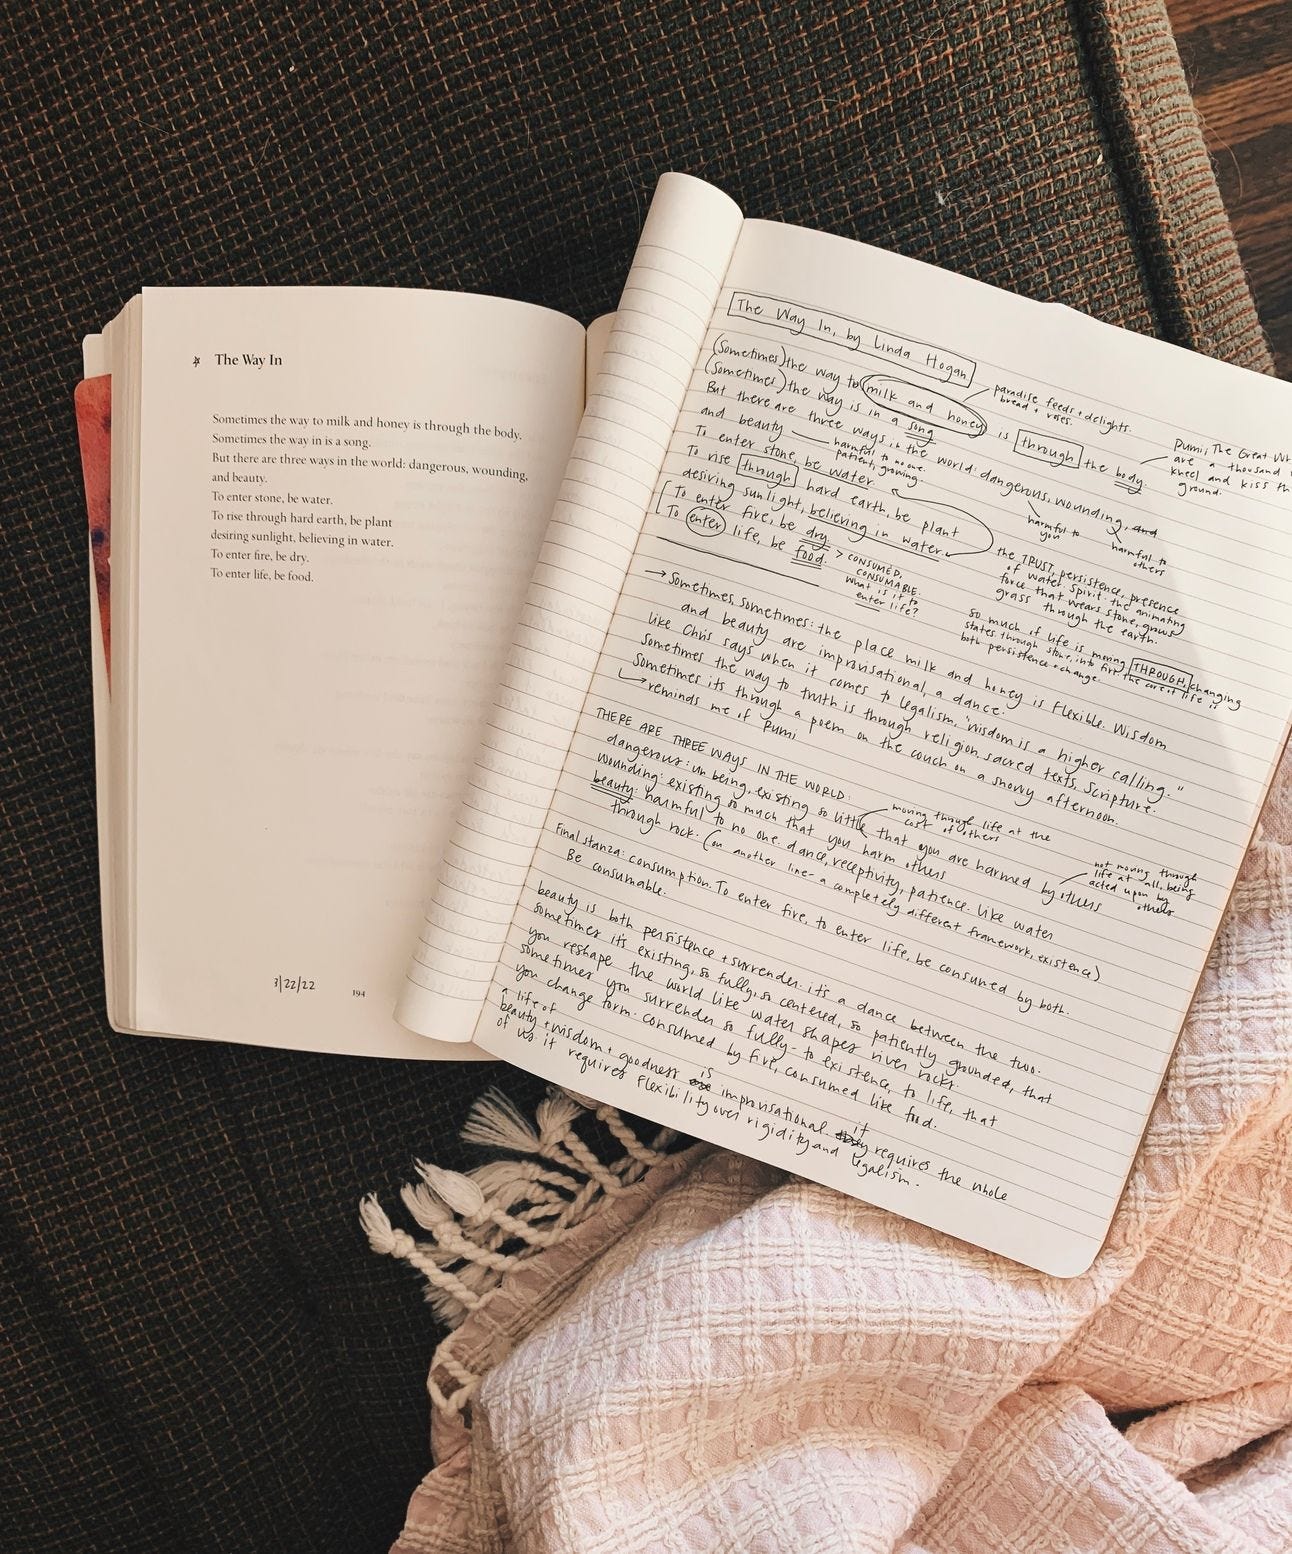 The Way In
Sometimes the way to milk and honey is through the body.
Sometimes the way in is a song.
But there are three ways in the world: dangerous, wounding,
and beauty.
To enter stone, be water.
To rise through hard earth, be plant
desiring sunlight, believing in water.
To enter fire, be dry.
To enter life, be food.
3/22/22
194
The Way In, by Linda Hogan
(Sometimes) the way to milk and honey is through the body.
(Sometimes) the way is in a song
But there are three ways in the world: dangerous, wounding, and
and beauty
To enter stone, be water.
To rise through hard earth, be plant
desiring sunlight, believing in water.
To enter fire, be dry.
To enter life, be food.
paradise feeds + delights.
bread + roses.
Rumi, The Great
are a thousand
kneel and kiss
ground.
harmful to no one.
patient, growing.
harmful to
you
harmful to
others
> CONSUMED,
CONSUMABLE.
what is it to
enter life?
the TRUST, persistence, presence
of water. spirit. the animating
force that wears stone, grows
grass through the earth.
so much of life is moving THROUGH, changing
states. through stone, into fire. the core of life is
both persistence + change.
→ Sometimes, sometimes: the place milk and honey is flexible. Wisdom
and beauty are improvisational, a dance.
like Chris says when it comes to legalism, "wisdom is a higher calling."
sometimes the way to truth is through religion, sacred texts, scripture.
sometimes its through a poem on the couch on a snowy afternoon.
reminds me of Rumi
THERE ARE THREE WAYS IN THE WORLD:
dangerous: un being, existing so little that you are harmed by others
wounding: existing so much that you harm others
beauty: harmful to no one. dance, receptivity, patience. like water
through rock. (on another line - a completely different framework, existence)
moving through life at the
cost of others
not moving through
life at all, being
acted upon by
others
Final stanza: consumption. To enter fire, to enter life, be consumed by both.
Be consumable.
beauty is both persistence + surrender. it's a dance between the two.
sometimes it's existing, so fully, so centered, so patiently grounded, that
you reshape the world like water shapes river rocks.
sometimes you surrender so fully - to existence, to life, that
you change form. consumed by fire, consumed like food.
a life of
beauty + wisdom + goodness is improvisational it requires the whole
of us. it requires flexibility over rigidity and legalism.